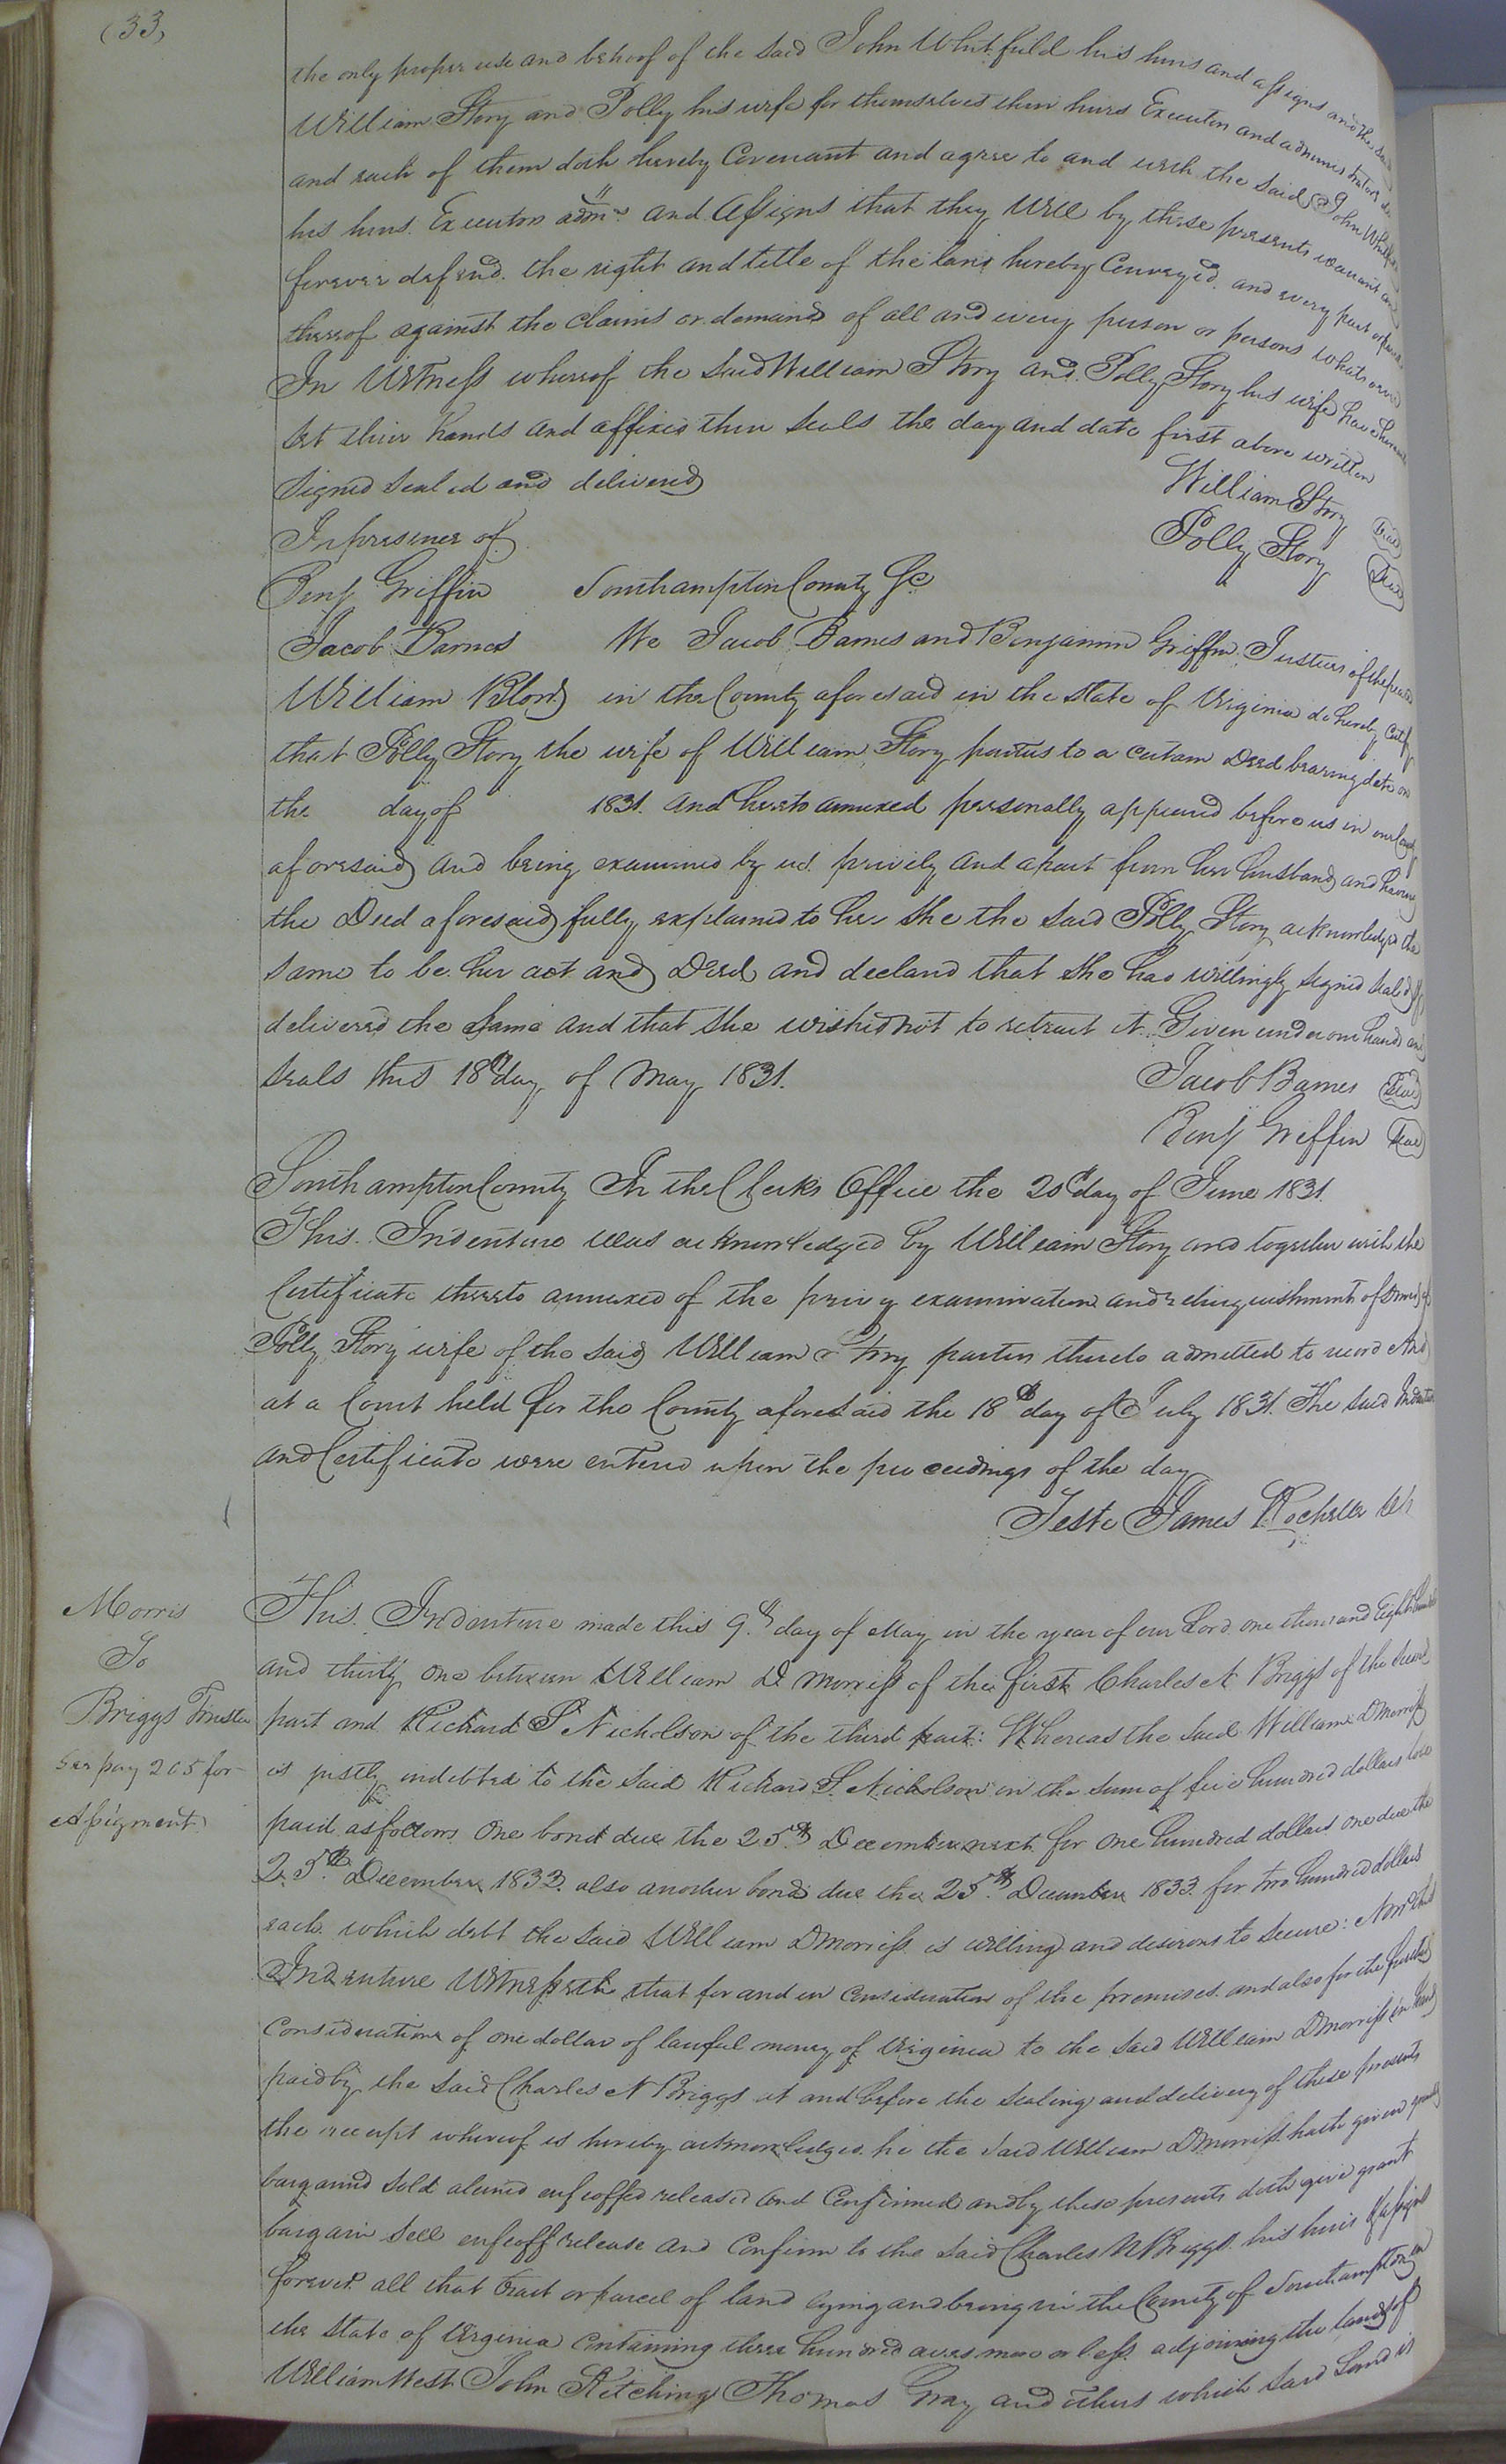 (33)
the only proper use and behoof of the said John Whitfield his heirs and assigns and the said
William Story and Polly his wife for themselves their heirs Executors and administrators do
and each of them doth hereby Covenant and agree to and with the said John Whitfield
his heirs Executors admrs and Assigns that they will by these presents warrant and
forever defend the right and title of the land hereby Conveyed and every part or parcel
thereof against the claims or demands of all and every person or persons whatsoever
In Witness whereof the said William Story and Polly Story his wife have hereunto
set their hands and affixed their seals the day and date first above written
Signed Sealed and delivered William Story Seal
In presence of Polly Story Seal
Benj Griffin Southampton County Sc
Jacob Barnes We Jacob Barnes and Benjamin Griffin Justices of the peace
William Blow in the County aforesaid in the State of Virginia do hereby Certify
that Polly Story the wife of William Story parties to a certain Deed bearing date on
the day of 1831 and hereto annexed personally appeared before us in our County
aforesaid and being examined by us privily and apart from her husband and having
the Deed aforesaid fully explained to her she the said Polly Story acknowledged the
same to be her act and Deed and declared that she had willingly signed sealed &
delivered the same and that she wished not to retract it. Given under our hands and
seals this 18th day of May 1831. Jacob Barnes Seal
Benj Griffin Seal
Southampton County In the Clerks Office the 20th day of June 1831.
This Indenture was acknowledged by William Story and together with the
Certificate thereto annexed of the privy examination and relinquishment of dower of
Polly Story wife of the said William Story parties thereto admitted to record And
at a Court held for the County aforesaid the 18th day of July 1831. The said Indenture
and Certificate were entered upon the proceedings of the day
Teste James Rochelle Clk
Morris
To
Briggs Trustee
pay 205 for
Assigment
This Indenture made this 9th day of May in the year of our Lord one thousand Eight hundred
and thirty one between William D Morriss of the first Charles N Briggs of the second
part and Richard S Nicholson of the third part: Whereas the said William D Morriss
is justly indebted to the said Richard S. Nicholson in the sum of five hundred dollars to be
paid as follows One bond due the 25th December next for One hundred dollars one due the
25th December 1832. also another bond due the 25th December 1833. for two hundred dollars
each. which debt the said William D Morriss is willing and desirous to secure: Now this
Indenture Witnesseth that for and in Consideration of the premises. and also for the further
Consideration of one dollar of lawful money of Virginia to the said William D Morriss in hand
paid by the said Charles N Briggs at and before the sealing and delivery of these presents
the receipt whereof is hereby acknowledged he the said William D Morriss hath given granted
bargained sold aliened enfeoffed released and Confirmed and by these presents doth give grant
bargain sell enfeoff release and Confirm to the said Charles N Briggs his heirs & assigns
forever all that tract or parcel of land lying and being in the County of Southampton in
the State of Virginia Containing three hundred acres more or less adjoining the lands of
William West John Kitching Thomas Gray and others which said Land is